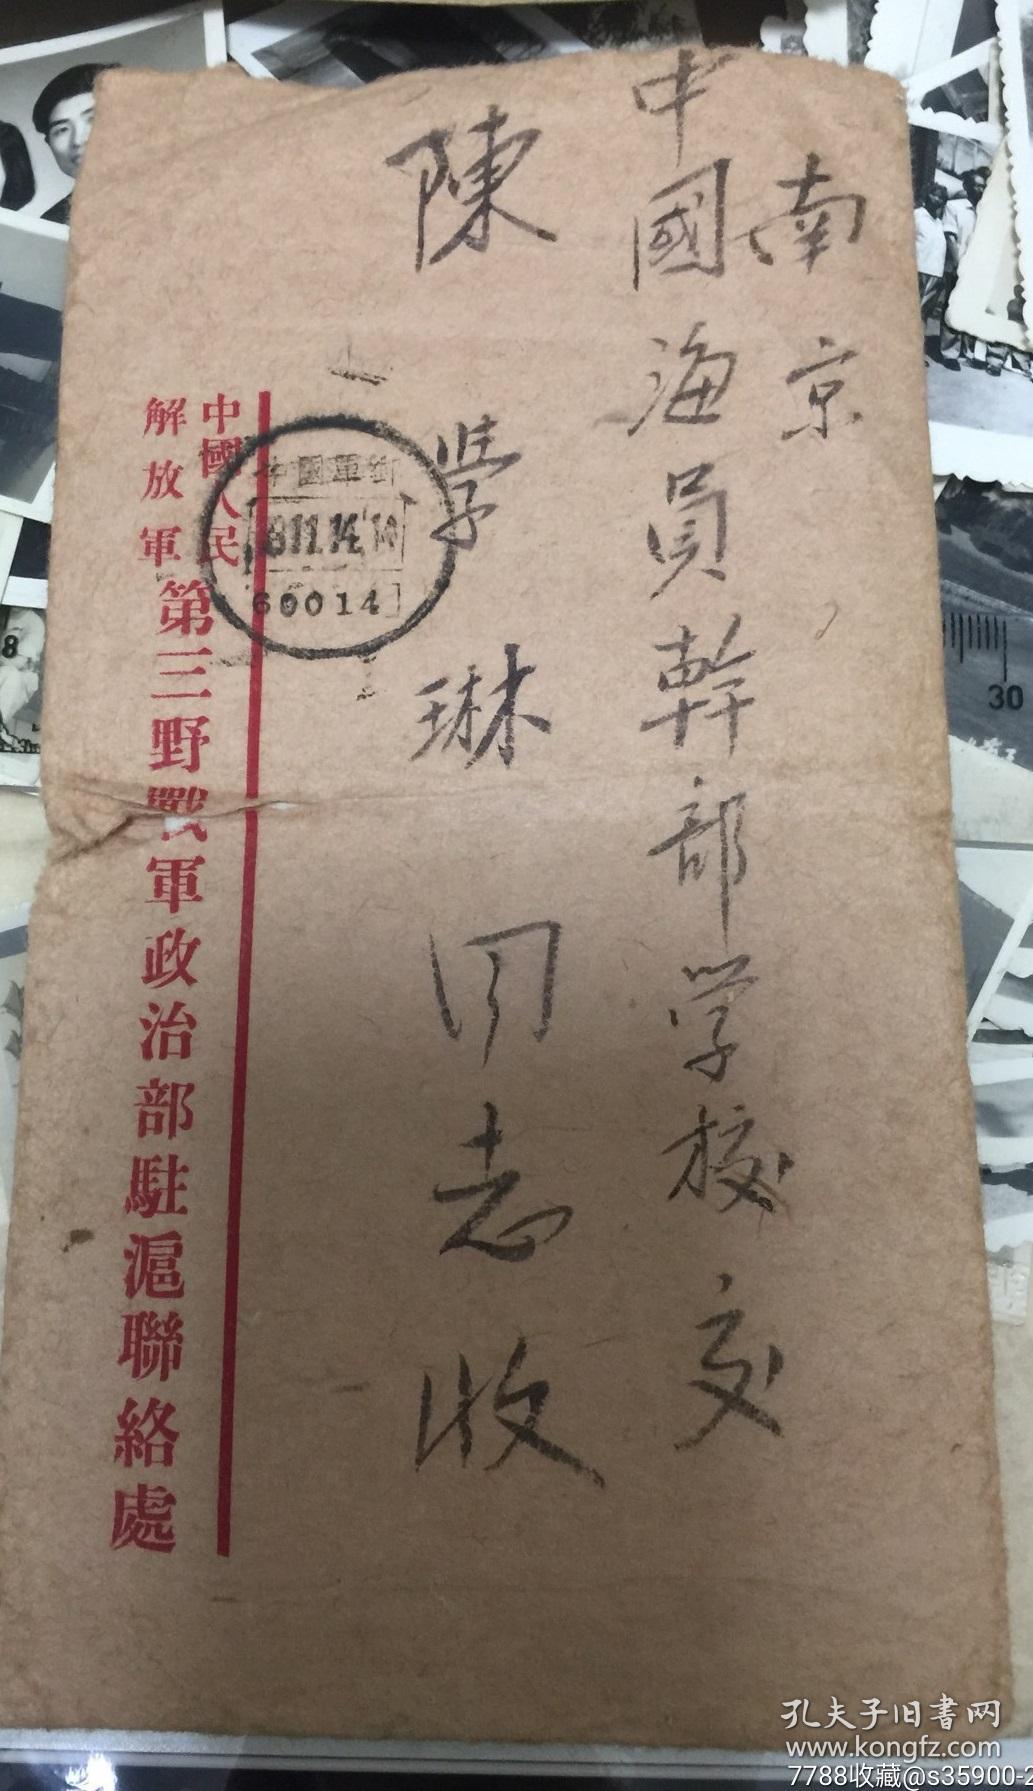 南京
中國海員幹部学校交
陳学琳同志收
中國人民
解放軍
第三野戰軍政治部駐滬聯絡處
60014
30
8
孔夫子旧书网
www.kongfz.com
7788收藏@s35900-2